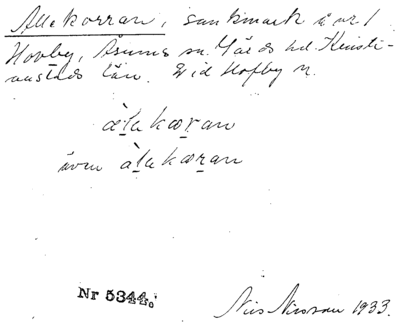 Allekorran, sankmark å nr 1
Hovby, Åsums sn. Gärds hd. Kristi-
anstads län. Vid Hofby n.
àlakæran
även àlakæran
Nr 5344.
Nils Nilsson 1933.